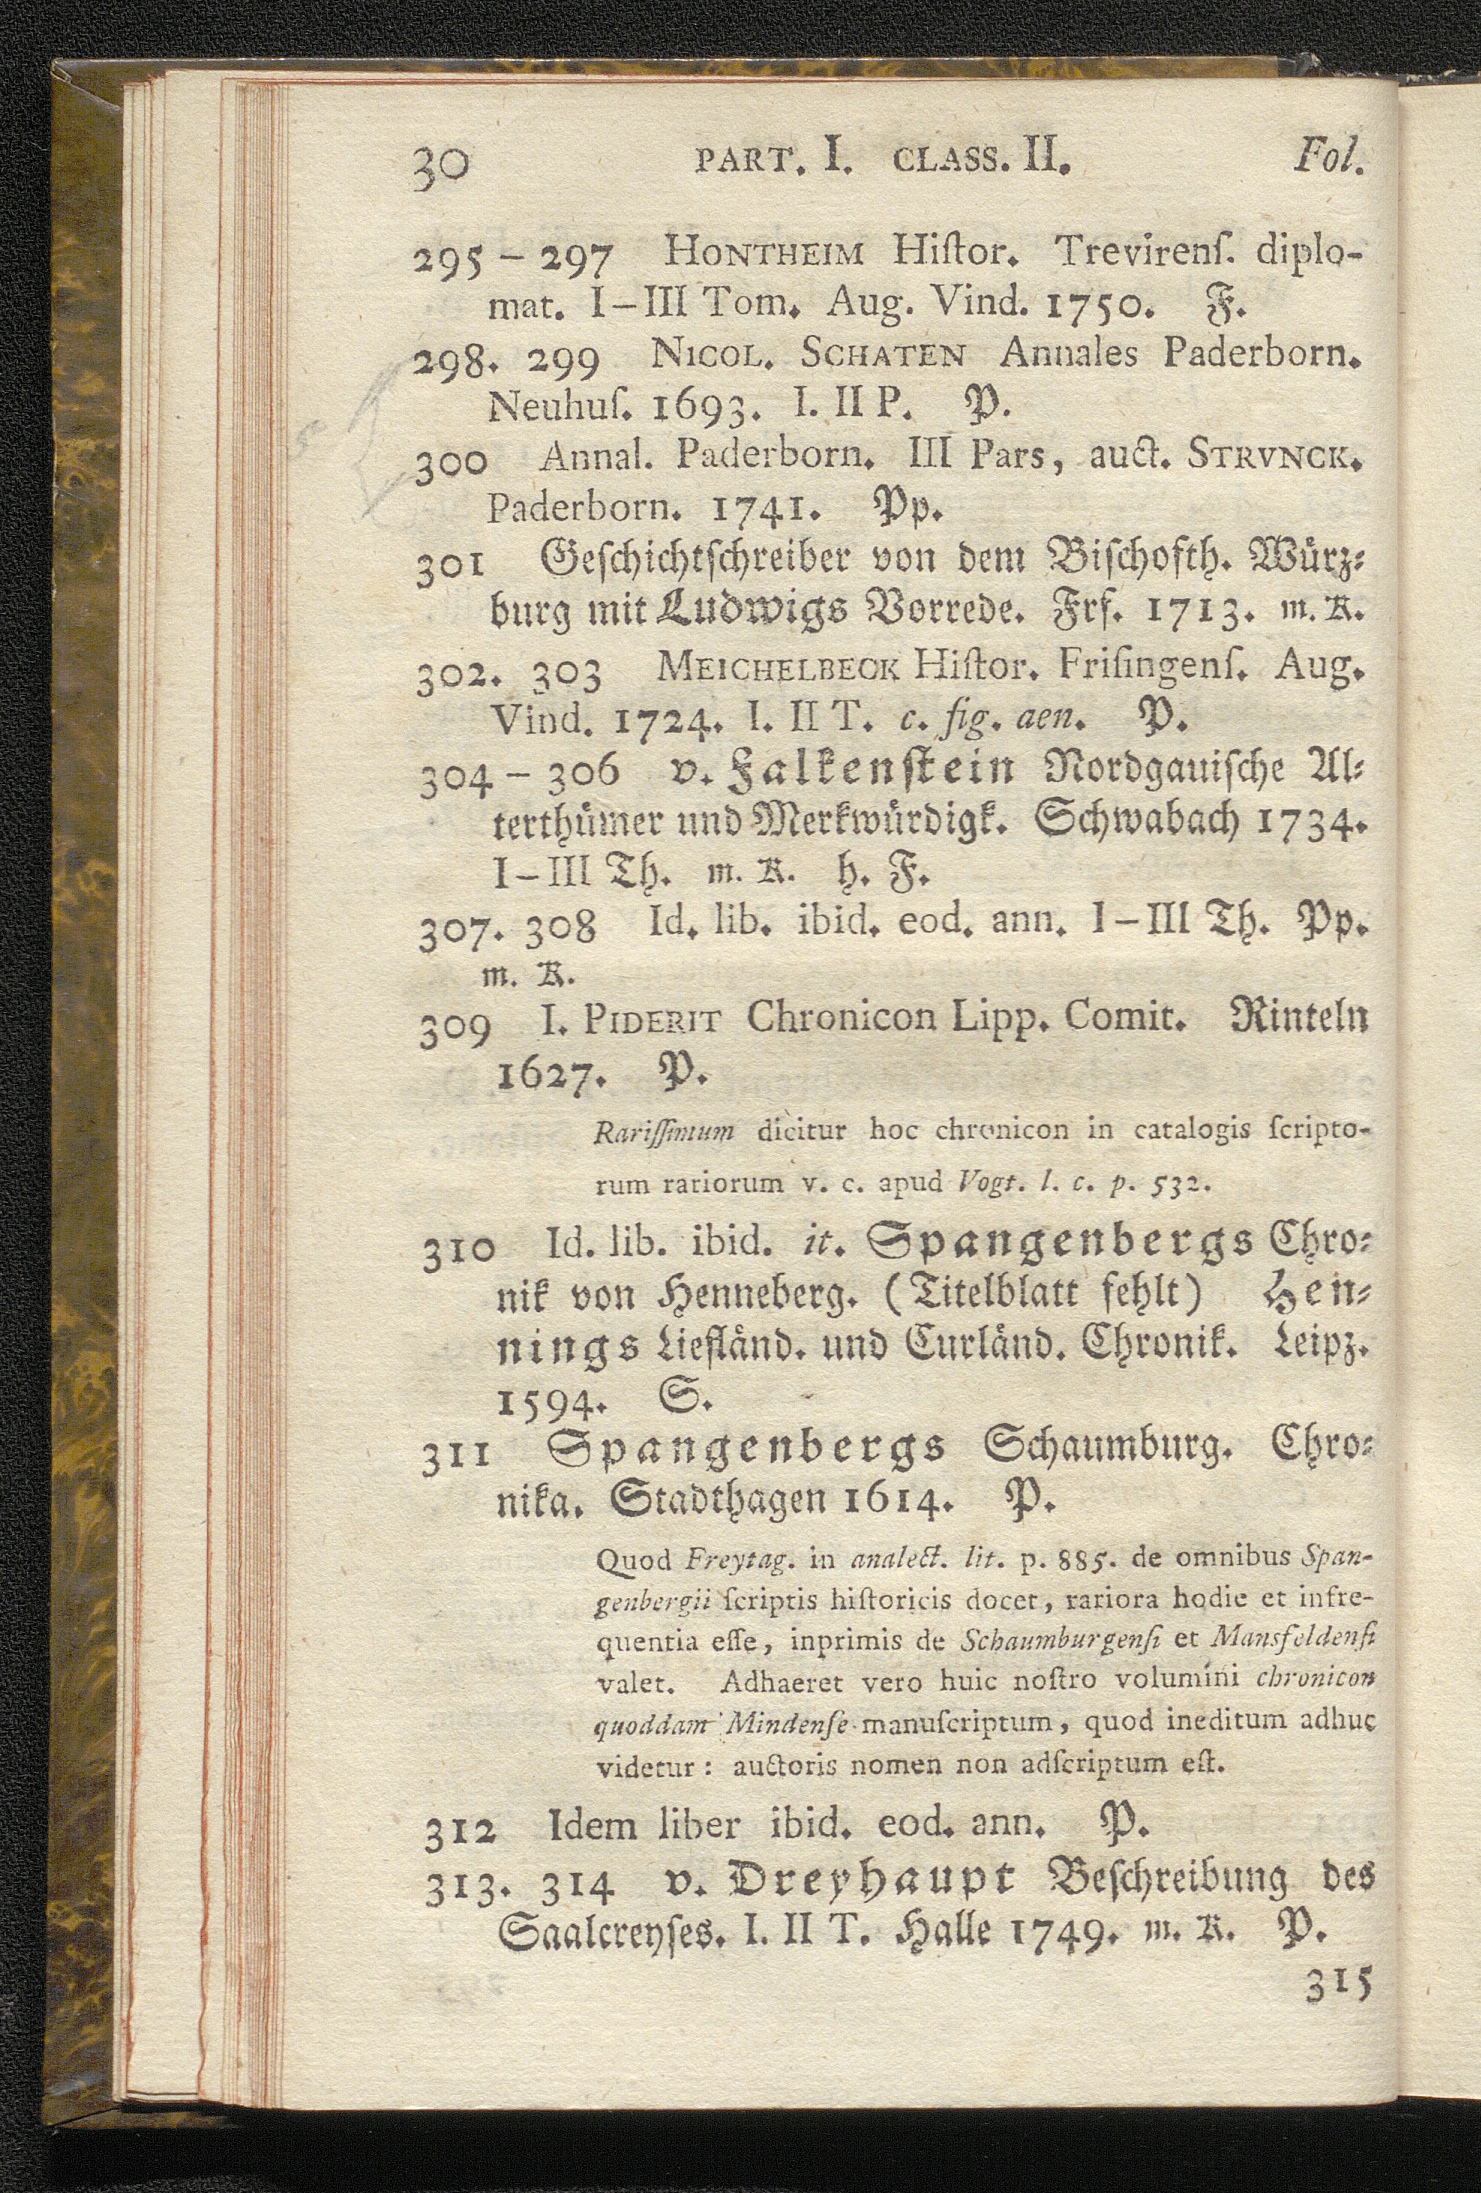 30 PART. I. CLASS. II. Fol.
295 – 297 HONTHEIM Hiſtor. Trevirenſ. diplo-
mat. I–III Tom. Aug. Vind. 1750. F.
298. 299 NICOL. SCHATEN Annales Paderborn.
Neuhuſ. 1693. I. II P. P.
300 Annal. Paderborn. III Pars, auct. STRVNCK.
Paderborn. 1741. Pp.
301 Geſchichtſchreiber von dem Biſchofth. Würz-
burg mit Ludwigs Vorrede. Frf. 1713. m. K.
302. 303 MEICHELBECK Hiſtor. Friſingenſ. Aug.
Vind. 1724. I. II T. c. fig. aen. P.
304 – 306 v. Falkenſtein Nordgauiſche Al-
terthümer und Merkwürdigk. Schwabach 1734.
I–III Th. m. K. h. F.
307. 308 Id. lib. ibid. eod. ann. I–III Th. Pp.
m. K.
309 I. PIDERIT Chronicon Lipp. Comit. Rinteln
1627. P.
Rariſſimum dicitur hoc chronicon in catalogis ſcripto-
rum rariorum v. c. apud Vogt. l. c. p. 532.
310 Id. lib. ibid. it. Spangenbergs Chro-
nik von Henneberg. (Titelblatt fehlt) Hen-
nings Liefländ. und Curländ. Chronik. Leipz.
1594. S.
311 Spangenbergs Schaumburg. Chro-
nika. Stadthagen 1614. P.
Quod Freytag. in analect. lit. p. 885. de omnibus Span-
genbergii ſcriptis hiſtoricis docet, rariora hodie et infre-
quentia eſſe, inprimis de Schaumburgenſi et Mansfeldenſi
valet. Adhaeret vero huic noſtro volumini chronicon
quoddam Mindenſe manuſcriptum, quod ineditum adhuc
videtur: auctoris nomen non adſcriptum eſt.
312 Idem liber ibid. eod. ann. P.
313. 314 v. Dreyhaupt Beſchreibung des
Saalcreyſes. I. II T. Halle 1749. m. K. P.
315